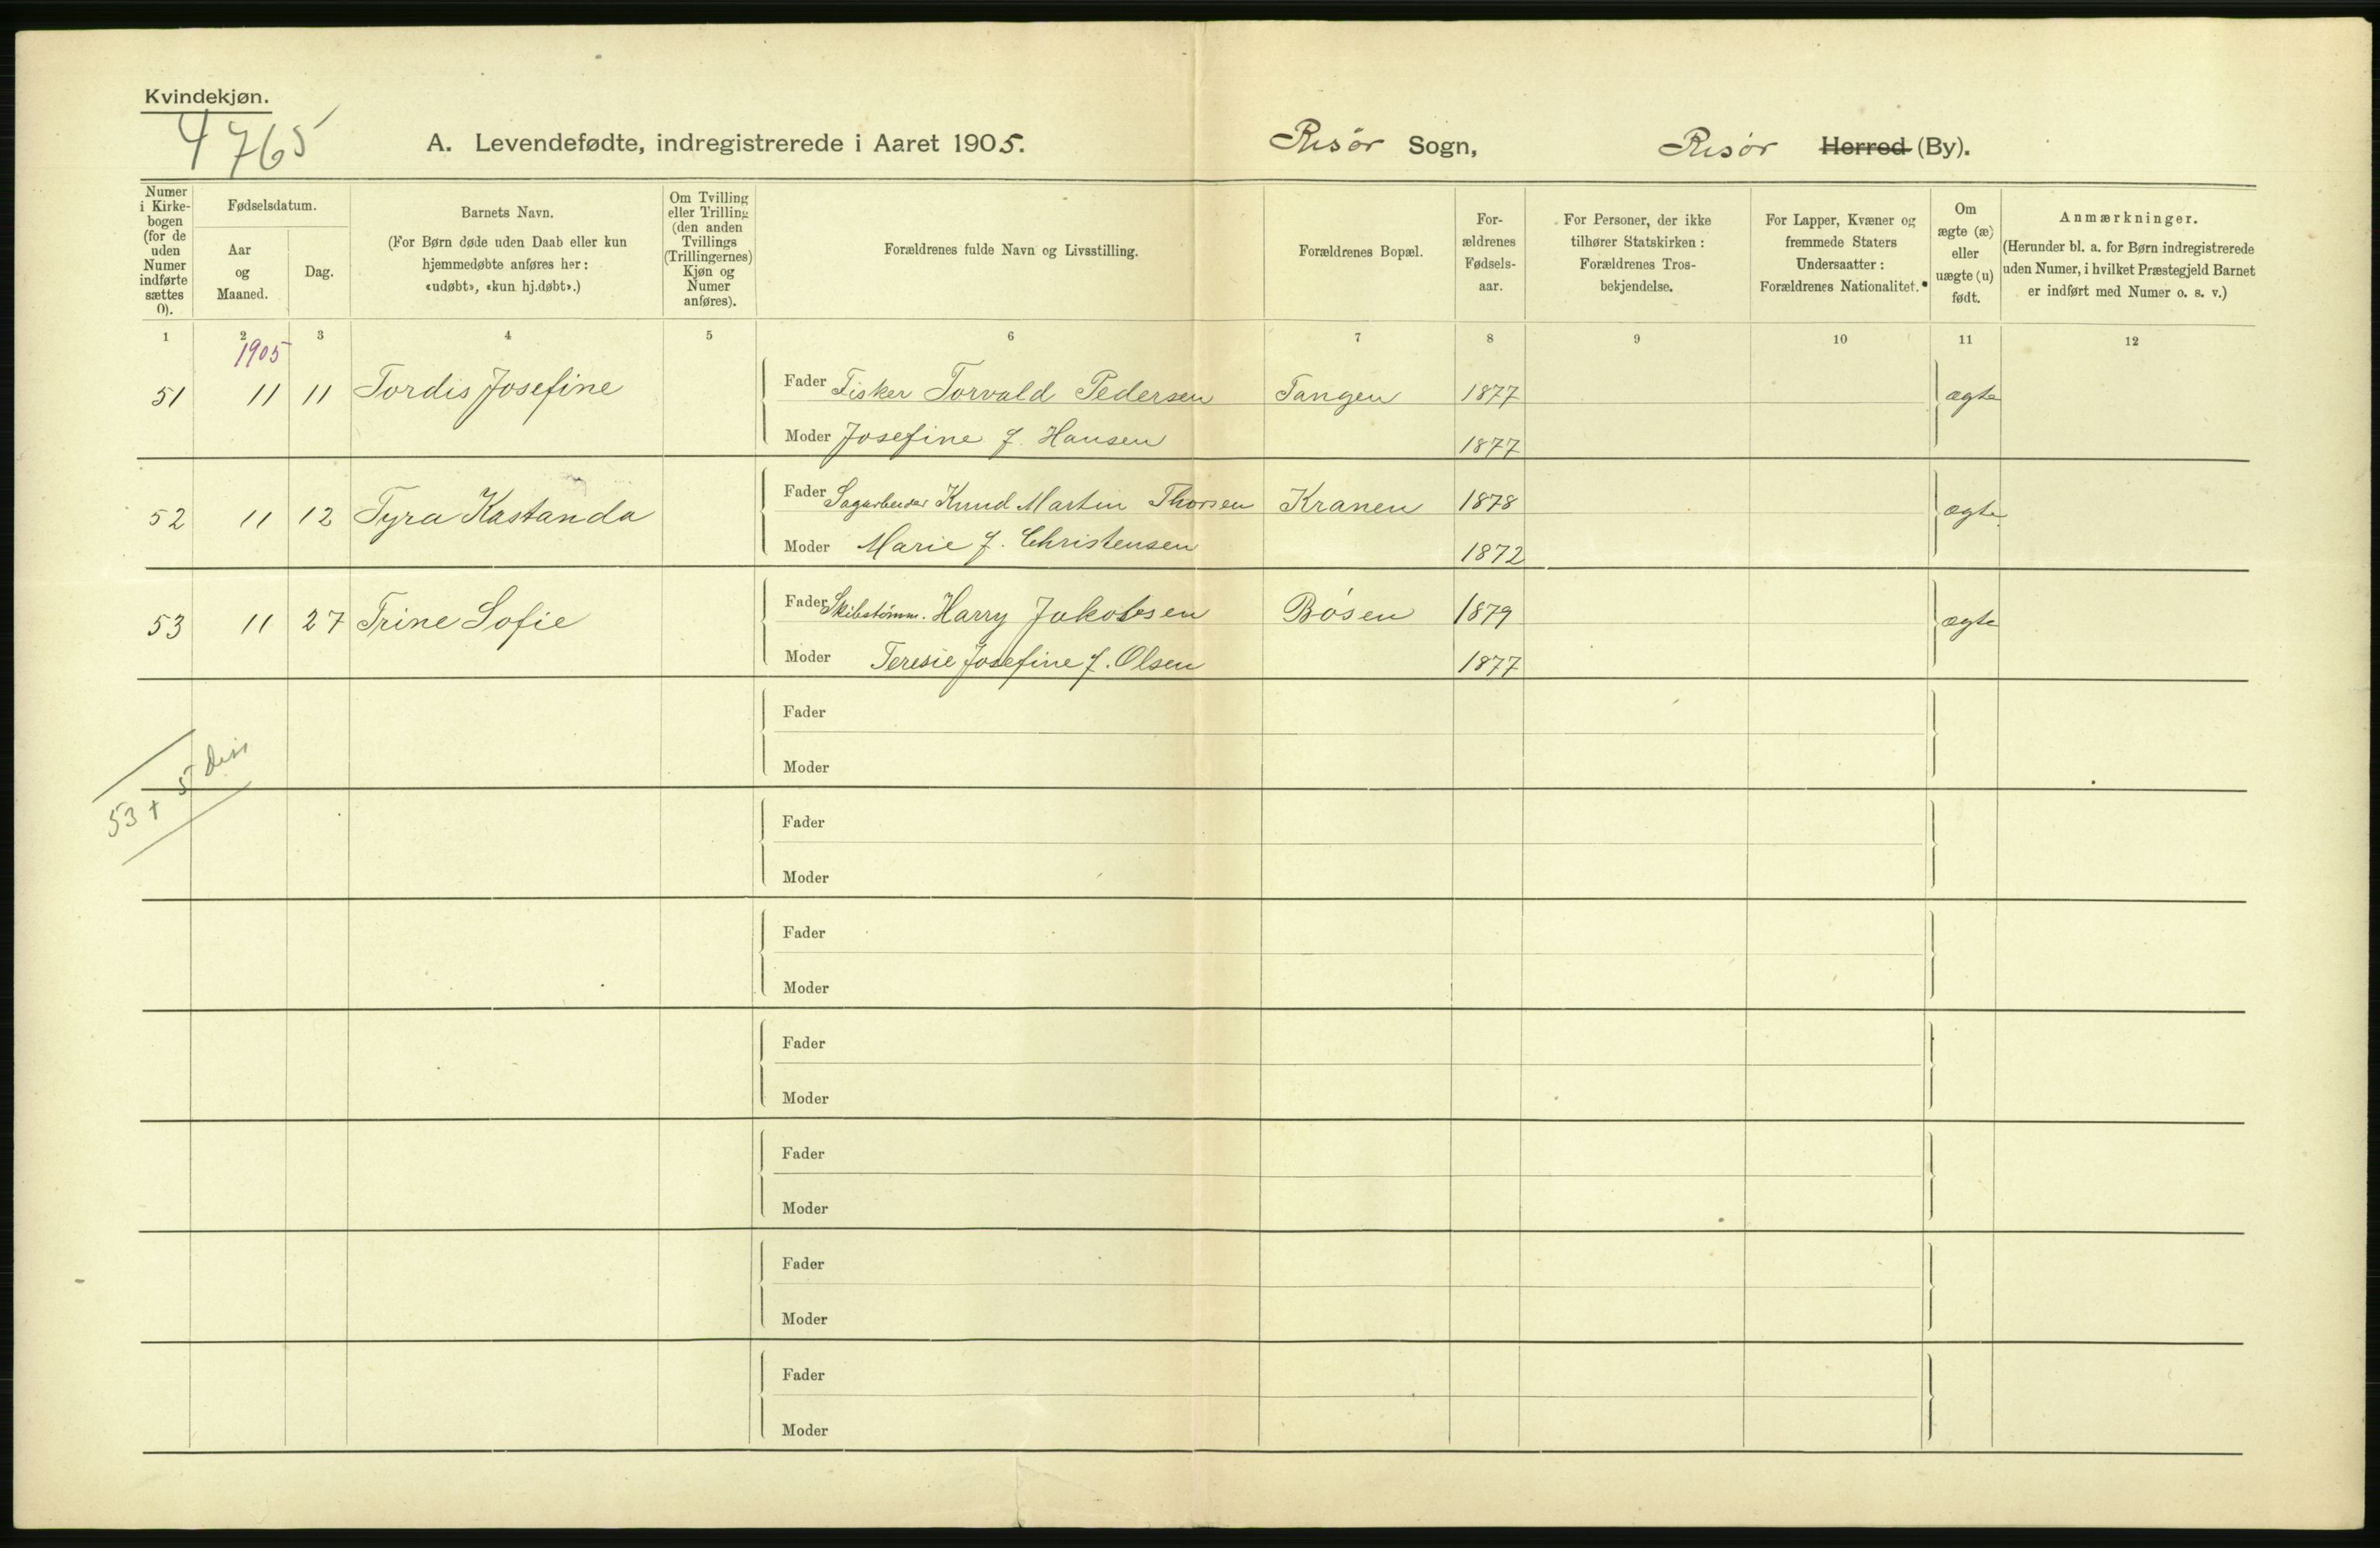 Kvindekjøn.
4765
A. Levendefødte, indregistrerede i Aaret 1905.
Risør Sogn,
Risør Herred (By).
Numer i Kirkebogen (for de uden Numer indførte sættes 0).
Fødselsdatum.
Aar og Maaned.
Dag.
Barnets Navn.
(For Børn døde uden Daab eller kun
hjemmedøbte anføres her:
«udøbt», «kun hj.døbt».)
Om Tvilling
eller Trilling
(den anden
Tvillings
(Trillingernes)
Kjøn og
Numer
anføres).
Forældrenes fulde Navn og Livsstilling.
Forældrenes Bopæl.
For-
ældrenes
Fødsels-
aar.
For Personer, der ikke
tilhører Statskirken:
Forældrenes Tros-
bekjendelse.
For Lapper, Kvæner og
fremmede Staters
Undersaatter:
Forældrenes Nationalitet.
Om
ægte (æ)
eller
uægte (u)
født.
Anmærkninger.
(Herunder bl. a. for Børn indregistrerede
uden Numer, i hvilket Præstegjeld Barnet
er indført med Numer o. s. v.)
1 2 3 4 5 6 7 8 9 10 11 12
1905
51 11 11 Tordis Josefine Fader Fisker Torvald Pedersen Tangen 1877 ægte
Moder Josefine f. Hansen 1877
52 11 12 Tyra Kastanda Fader Sagarbeider Knud Martin Thorsen Kranen 1878 ægte
Moder Marie f. Christensen 1872
53 11 27 Trine Sofie Fader Skibstømm. Harry Jakobsen Bosen 1879 ægte
Moder Teresie Josefine f. Olsen 1877
Fader
Moder
53 + 5 diss
Fader
Moder
Fader
Moder
Fader
Moder
Fader
Moder
Fader
Moder
Fader
Moder